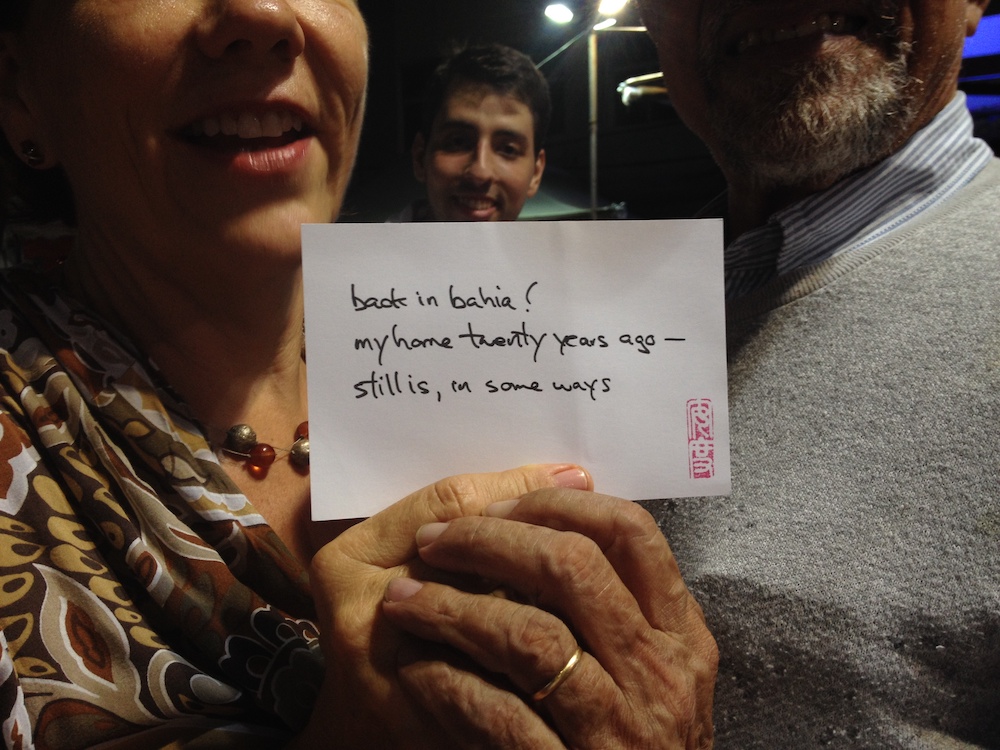 back in bahia!
my home twenty years ago —
still is, in some ways